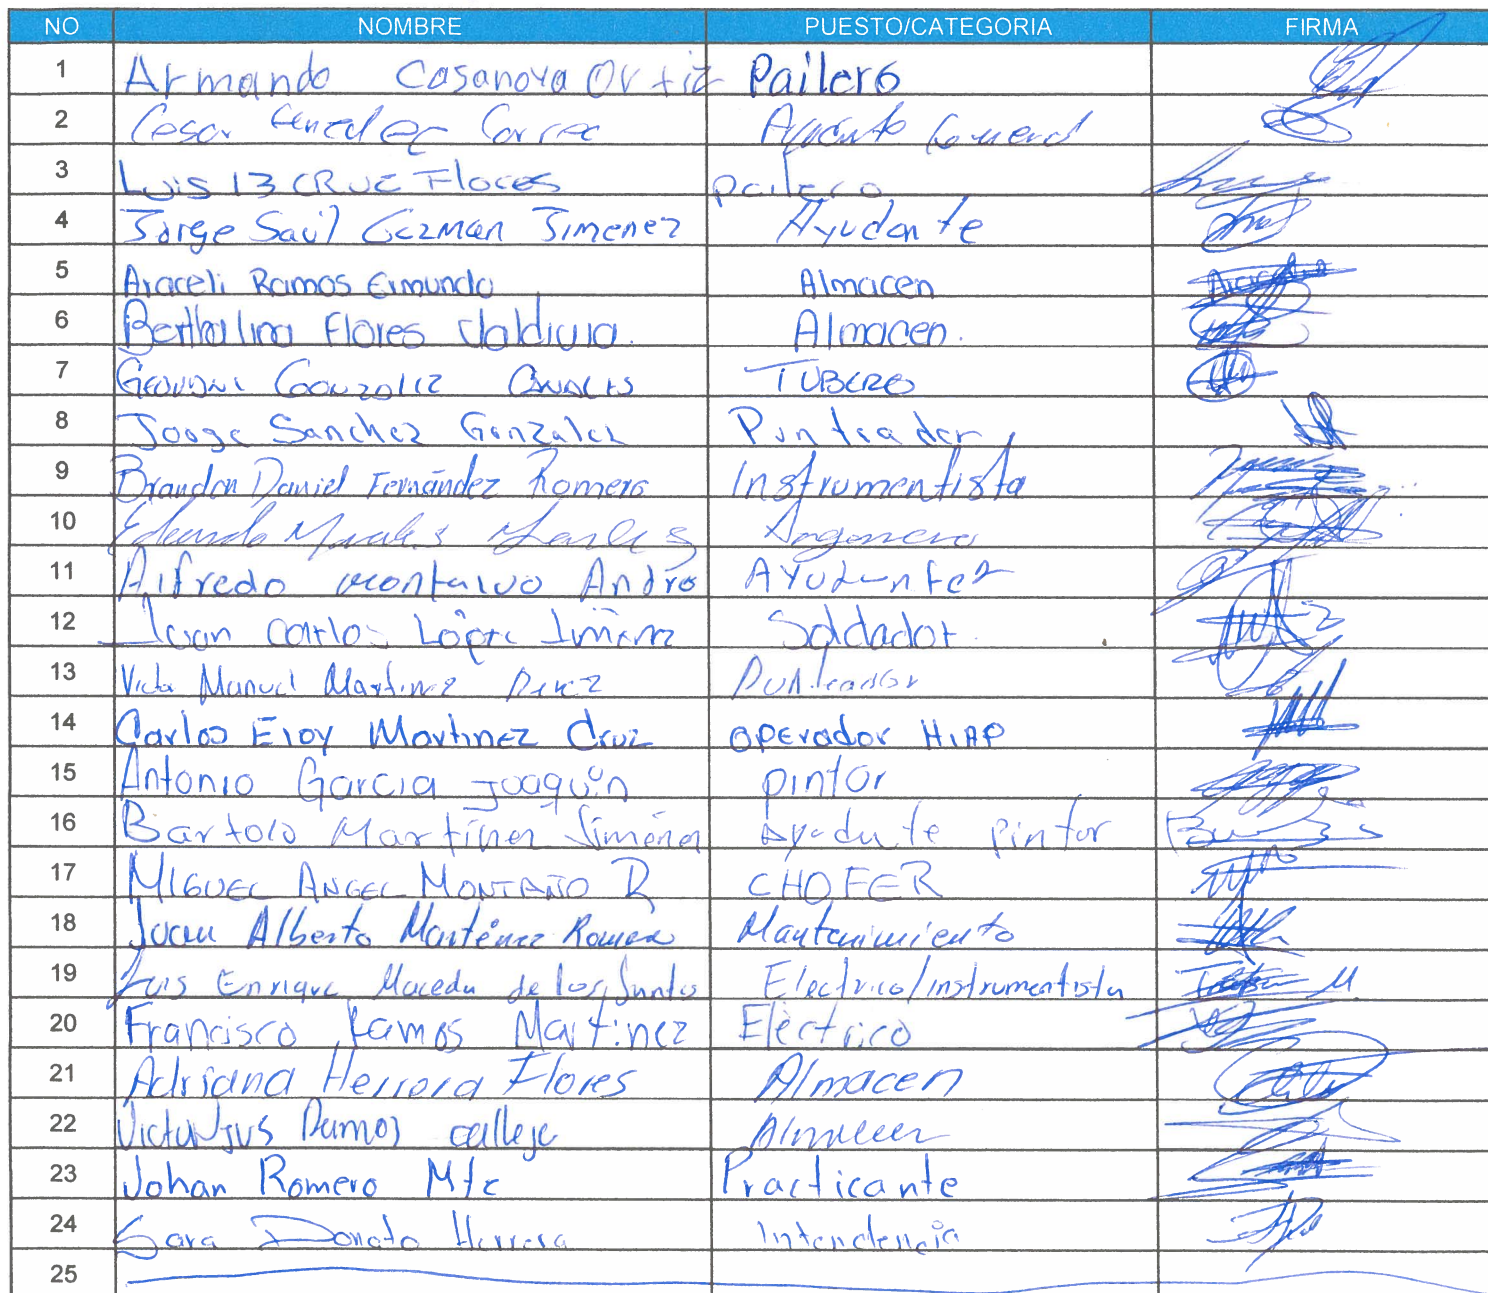 NO NOMBRE PUESTO/CATEGORIA FIRMA
1 Armando Casanova Ortiz Pailero
2 Cesar Correa General
3 Luis 13 CRUZ Flores pailero
4 Jorge Saúl Guzman Jimenez Ayudante
5 Araceli Ramos Ermundo Almacen Araceli
6 Berthalina Flores Valdivia. Almacen.
7 GEOVANI GONZALEZ CANALES TUBERO
8 Jorge Sanchez Gonzalez Punteador
9 Brandon Daniel Fernández Romero Instrumentista
10 Eduardo Morales
11 Alfredo montalvo Andres AYUdante
12 Juan Carlos López Jiménez Soldador
13 Victor Manuel Martinez Perez Punteador
14 Carlos Eloy Martinez Cruz operador HIAP
15 Antonio Garcia Joaquin pintor
16 Bartolo Martínez Jiménez Ayudante pintor
17 MIGUEL ANGEL MONTAÑO R CHOFER
18 Juan Alberto Martínez Romero Mantenimiento
19 Luis Enrique Maceda de los Santos Electrico/instrumentista
20 Francisco Ramos Martinez Eléctrico
21 Adriana Herrera Flores Almacen
22 Ramos calleja Almacen
23 Johan Romero Mtz Practicante
24 Sara Donato Herrera Intendencia
25